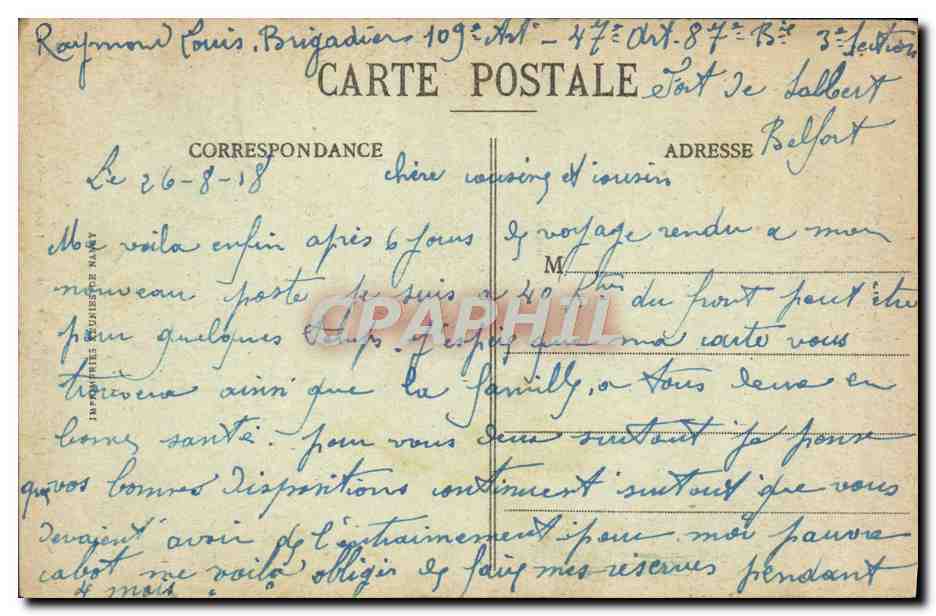 Raymond Louis. Brigadier 109e Art - 47e Art. 87e Bie 3e Section
CARTE POSTALE
Fort de Salbert
Belfort
CORRESPONDANCE
ADRESSE
Le 26-8-18 chère cousine et cousin
Me voila enfin après 6 jours de voyage rendu a mon
M
nouveau poste je suis a 40 du front peut être
pour quelques temps. j'espère que ma carte vous
trouvera ainsi que la famille, a tous deux en
bonne santé. pour vous deux surtout je pense
que vos bonnes dispositions continuent surtout que vous
devaient avoir de l'entrainement pour moi pauvre
cabot me voila obligé de faire mes réserves pendant
4 mois
IMPRIMERIES REUNIES DE NANCY
CPAPHIL